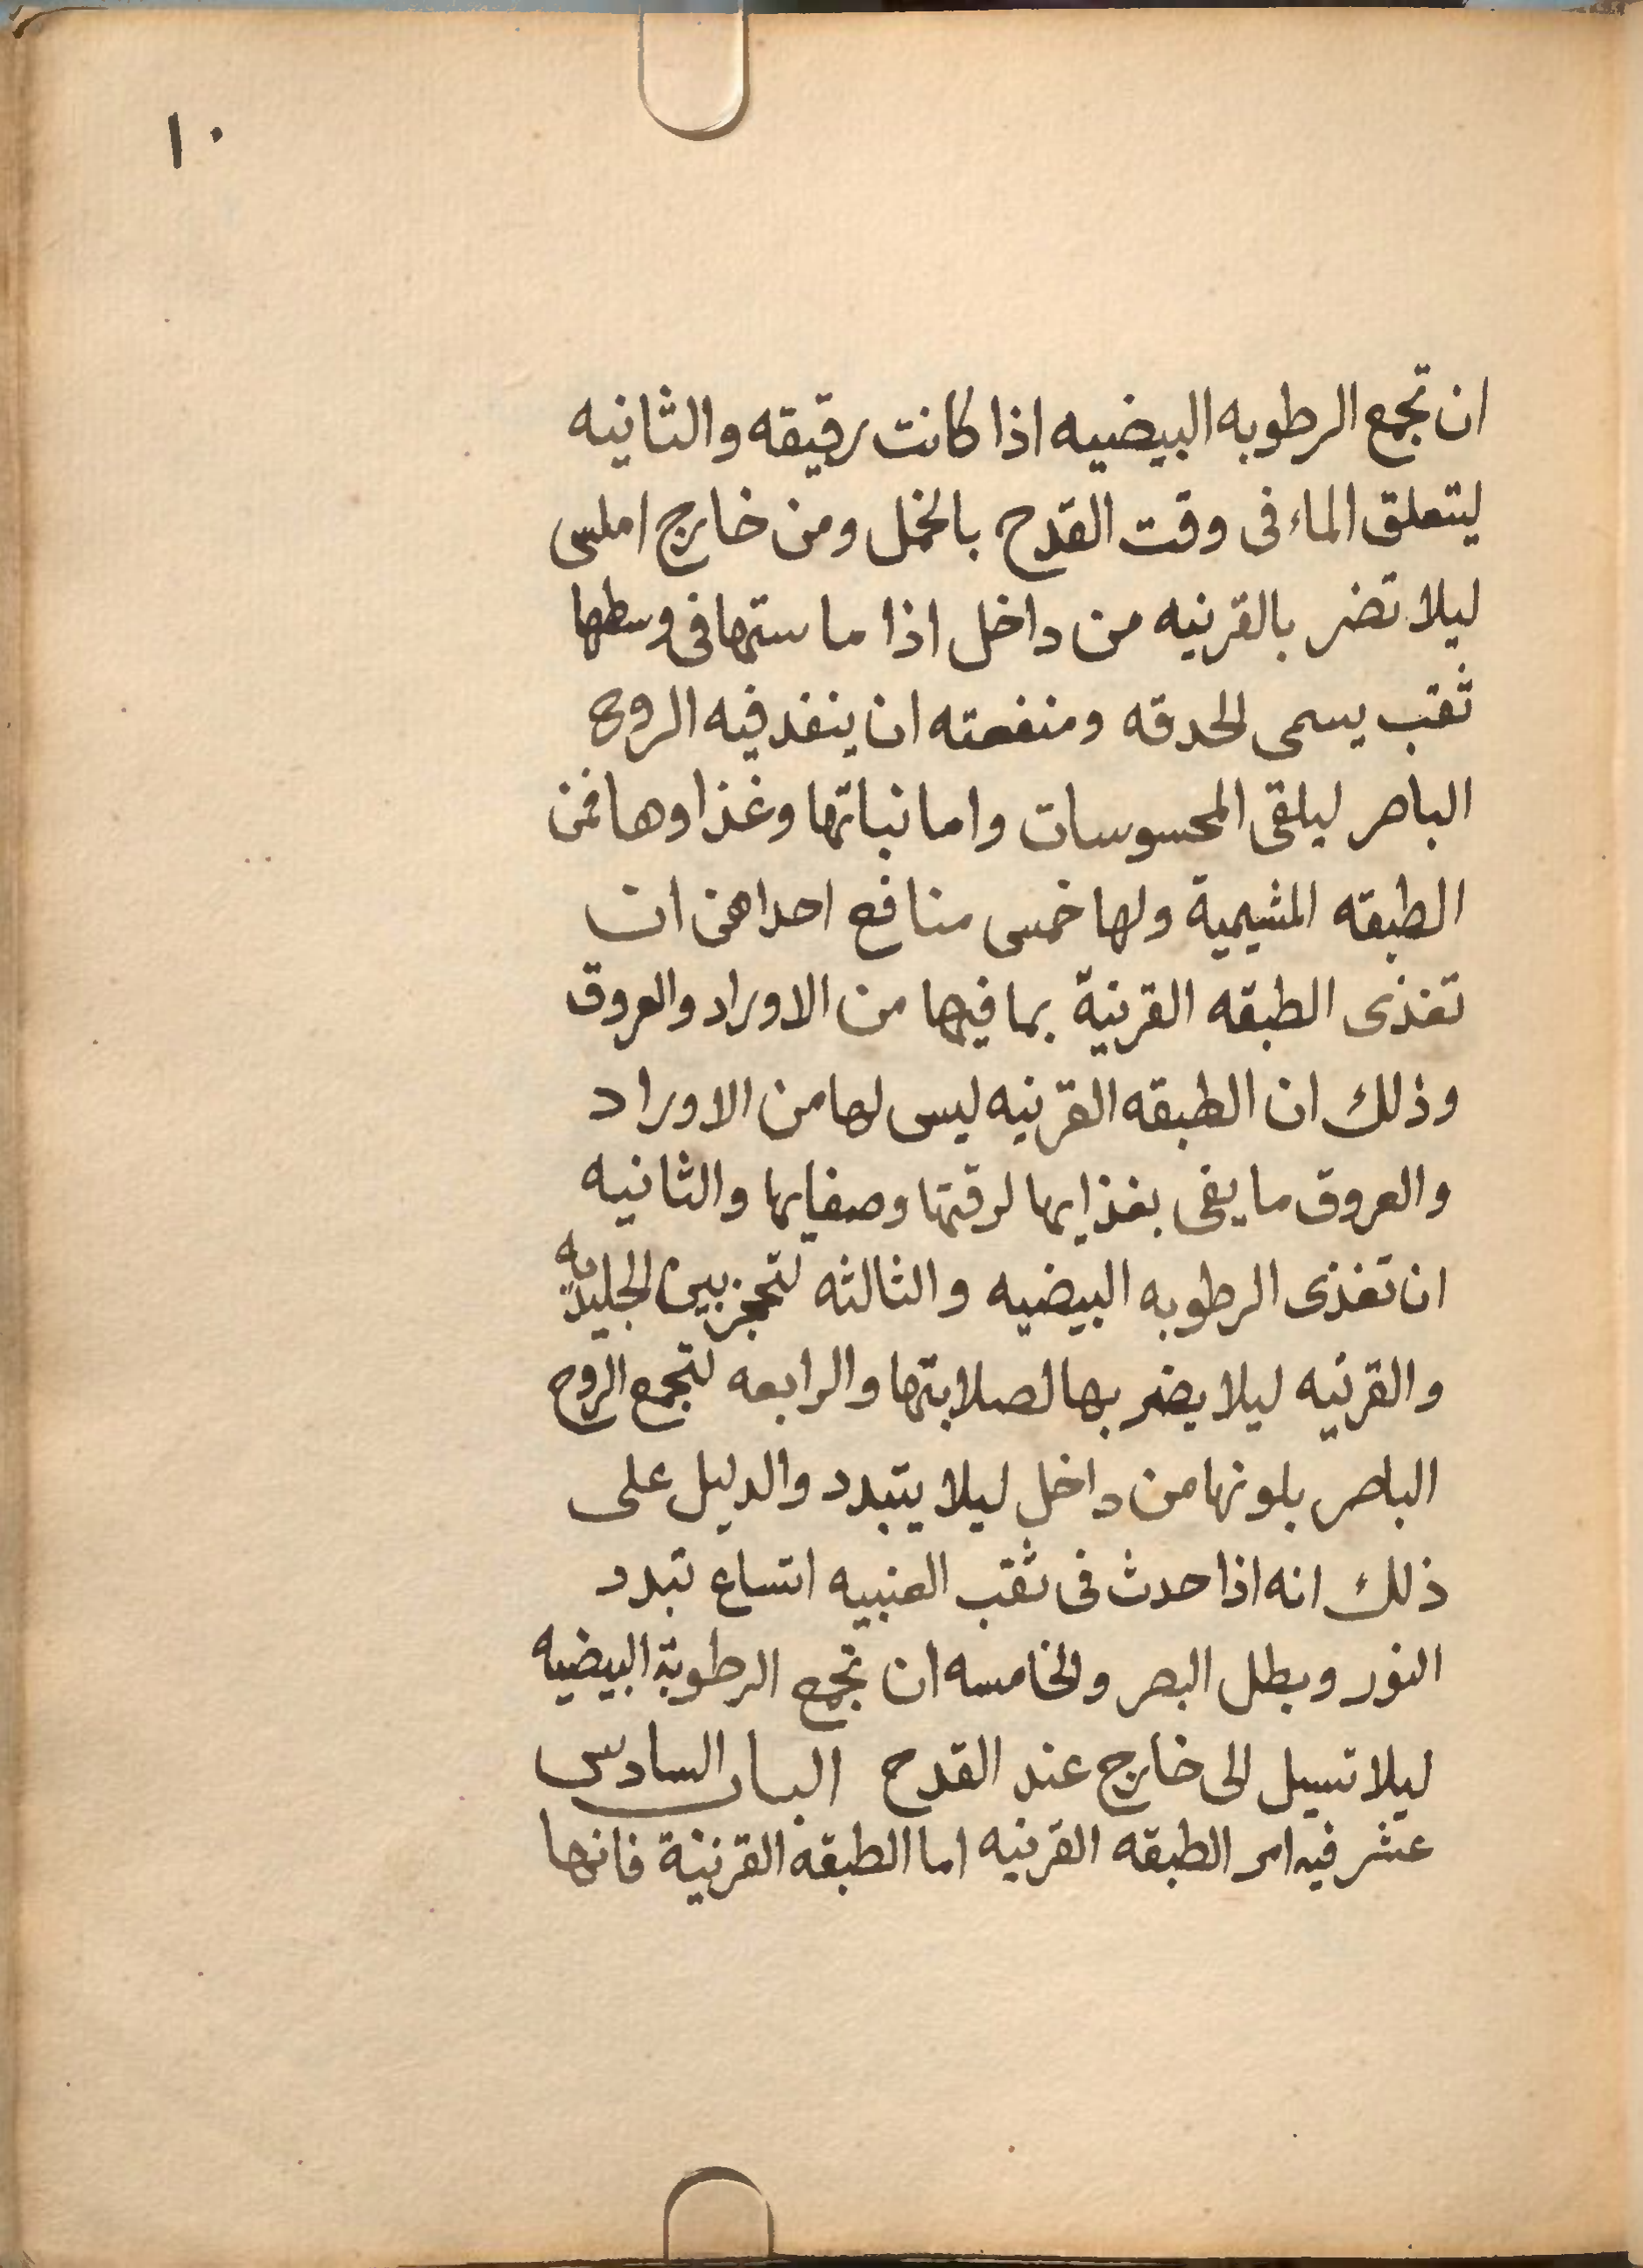 ١٠
ان تجمع الرطوبه البيضيه اذا كانت رقيقه والثانيه
ليتعلق الماء فى وقت القدح بالخمل ومن خارج املس
ليلا تضر بالقرنيه من داخل اذا ماستها فى وسطها
ثقب يسمى الحدقه ومنفعته ان ينفد فيه الروح
الباصر ليلقى المحسوسات واما نباتها وغذاوها فمن
الطبقه المشيمية ولها خمس منافع احداهن ان
تغذى الطبقه القرنية بما فيها من الاوراد والعروق
وذلك ان الطبقه القرنيه ليس لها من الاوراد
والعروق ما يفى بغذايها لرقتها وصفايها والثانيه
ان تغذى الرطوبه البيضيه والثالثه لتحجز بين الجليديه
والقرنيه ليلا يضر بها لصلابتها والرابعه لتجمع الروح
الباصر بلونها من داخل ليلا يتبدد والدليل على
ذلك انه اذا حدث فى ثقب العنبيه اتساع تبدد
النور وبطل البصر والخامسه ان تجمع الرطوبة البيضيه
ليلا تسيل الى خارج عند القدح الباب السادس
عشر فيه امر الطبقه القرنيه اما الطبقة القرنية فانها